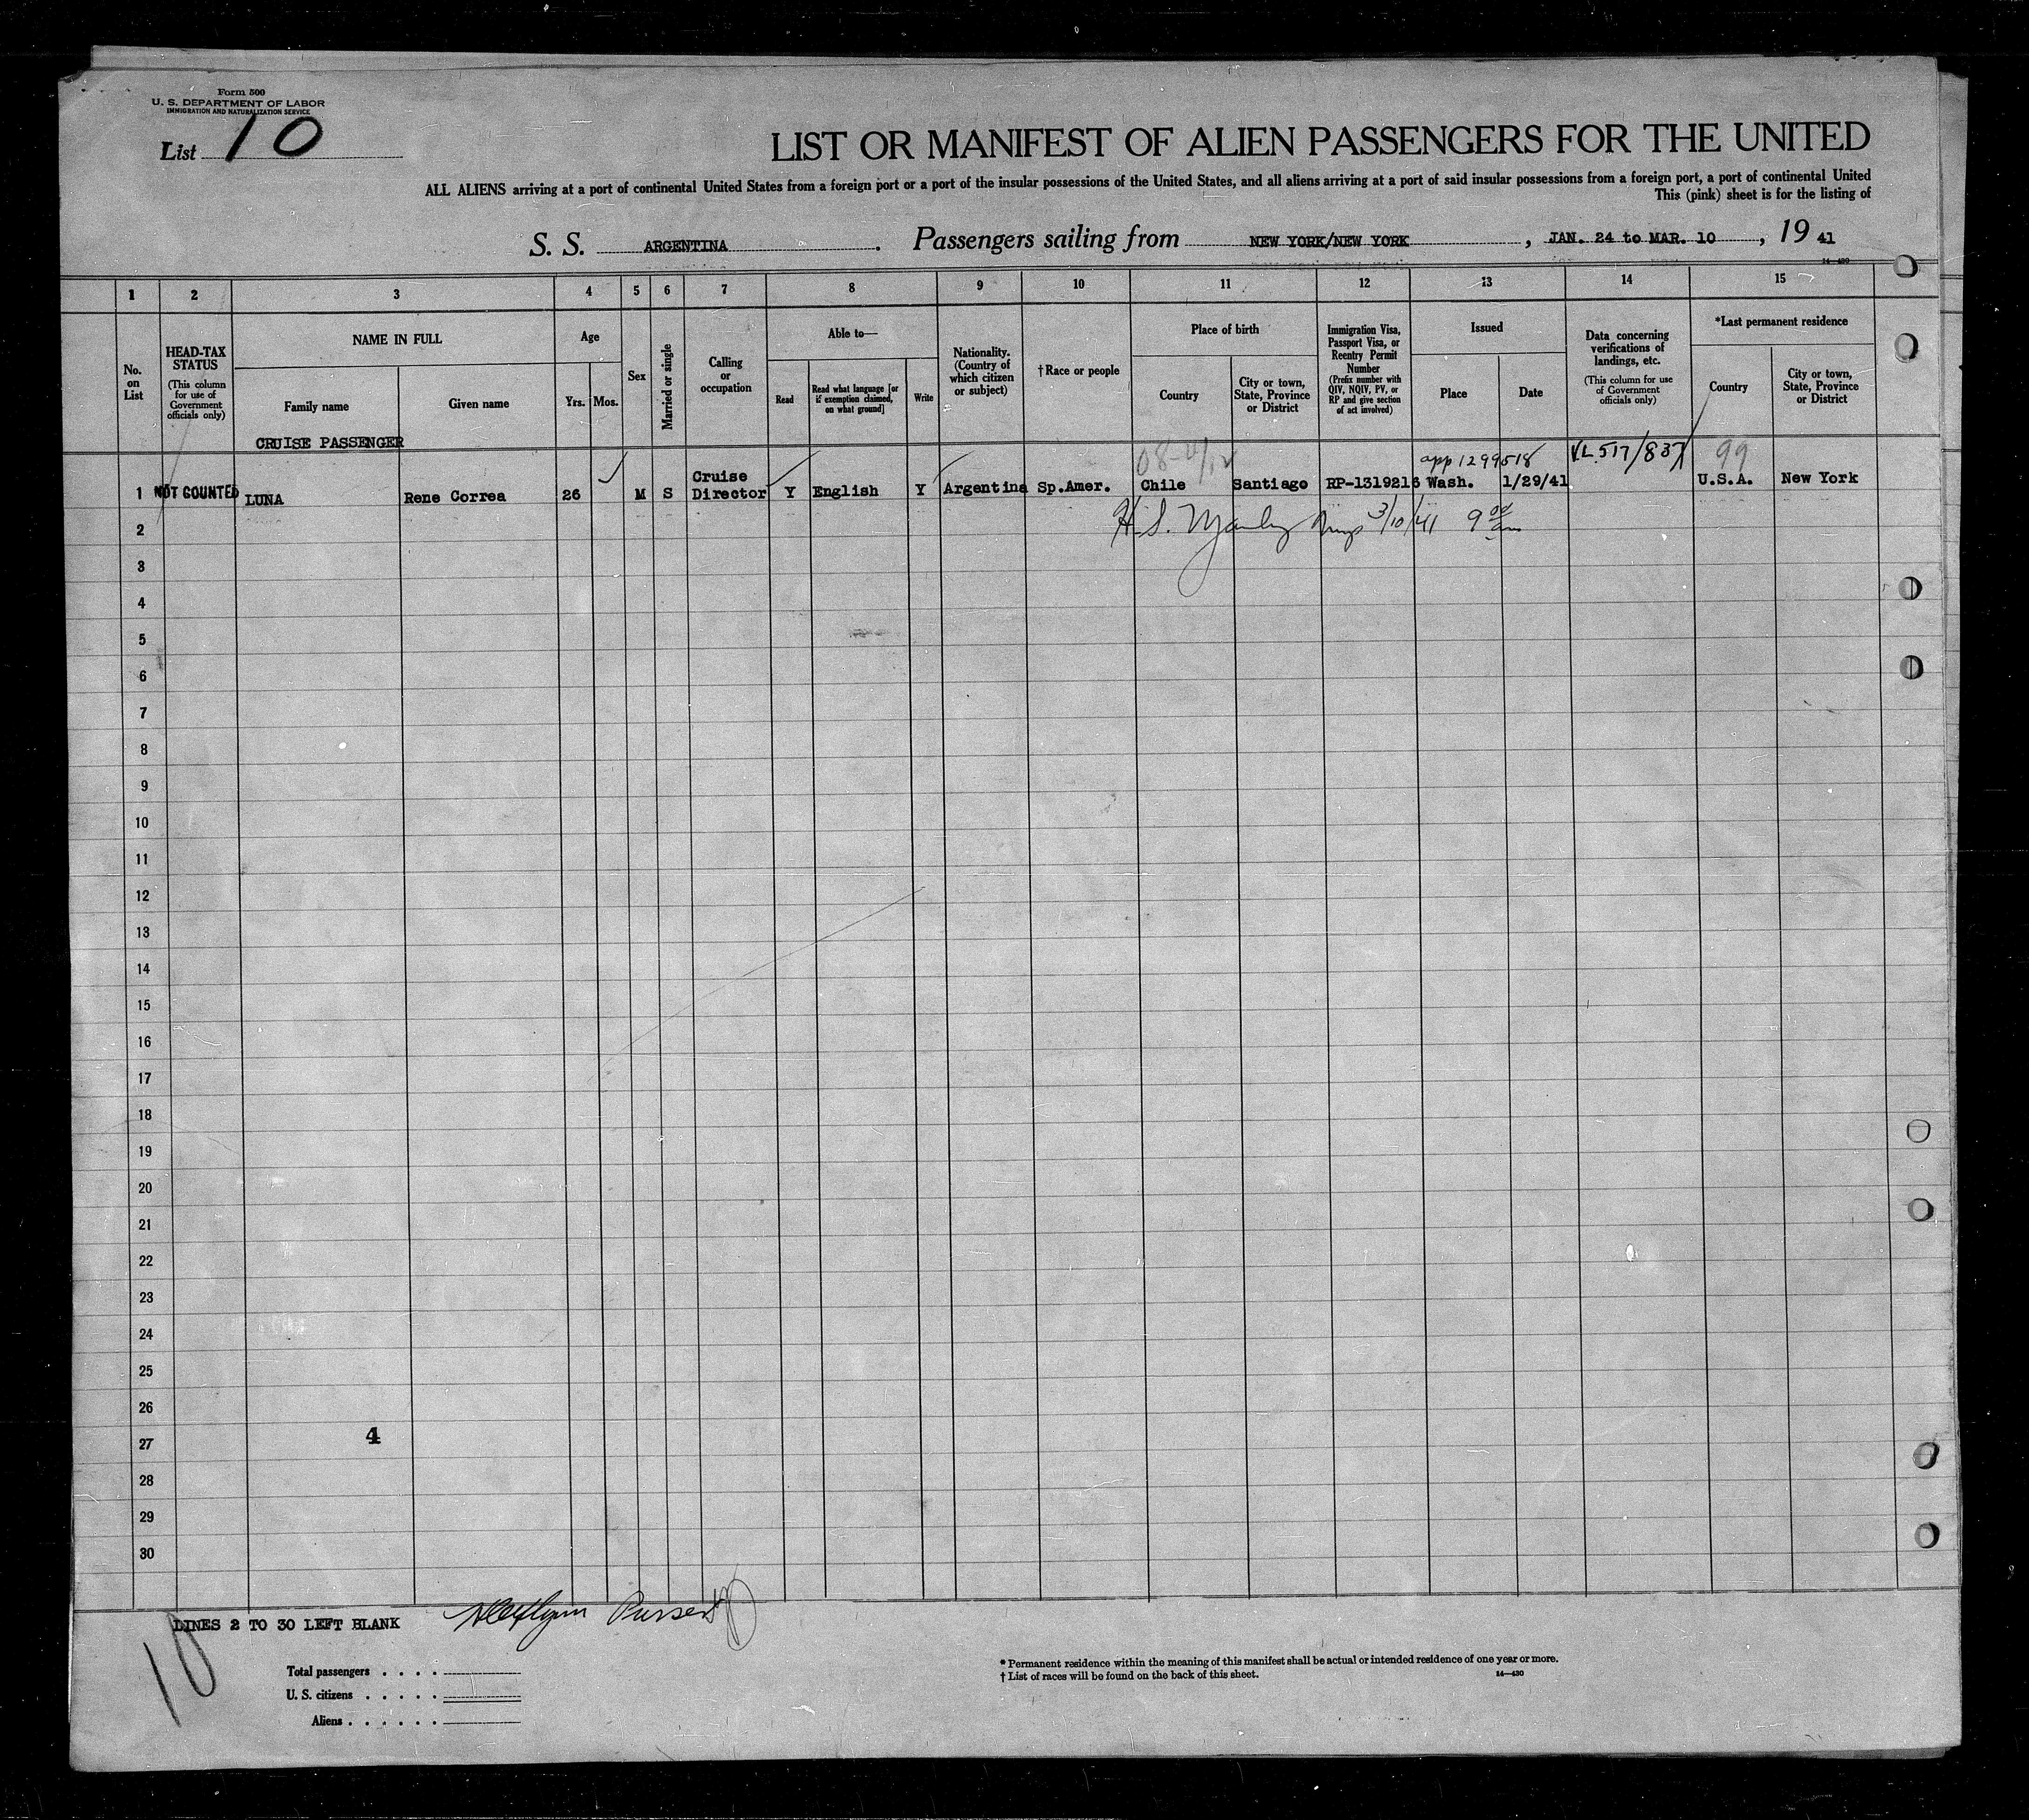 Form 500
U. S. DEPARTMENT OF LABOR
IMMIGRATION AND NATURALIZATION SERVICE
List 10
LIST OR MANIFEST OF ALIEN PASSENGERS FOR THE UNITED
ALL ALIENS arriving at a port of continental United States from a foreign port or a port of the insular possessions of the United States, and all aliens arriving at a port of said insular possessions from a foreign port, a port of continental United
This (pink) sheet is for the listing of
S. S. ARGENTINA . Passengers sailing from NEW YORK/NEW YORK , JAN. 24 to MAR. 10 , 19 41
14-430
1 2 3 4 5 6 7 8 9 10 11 12 13 14 15
No. on List
HEAD-TAX STATUS (This column for use of Government officials only)
NAME IN FULL
Family name
Given name
Age
Yrs. Mos.
Sex
Married or single
Calling or occupation
Able to—
Read
Read what language [or if exemption claimed, on what ground]
Write
Nationality. (Country of which citizen or subject)
†Race or people
Place of birth
Country
City or town, State, Province or District
Immigration Visa, Passport Visa, or Reentry Permit Number (Prefix number with QIV, NQIV, PV, or RP and give section of act involved)
Issued
Place
Date
Data concerning verifications of landings, etc. (This column for use of Government officials only)
*Last permanent residence
Country
City or town, State, Province or District
CRUISE PASSENGER
app 1299518 V.L. 517/837 99
1 NOT COUNTED LUNA Rene Correa 26 M S Cruise Director Y English Y Argentina Sp.Amer. Chile Santiago RP-1319216 Wash. 1/29/41 U.S.A. New York
2 H. S. 3/10/41 9 00 am
3
4
5
6
7
8
9
10
11
12
13
14
15
16
17
18
19
20
21
22
23
24
25
26
27 4
28
29
30
LINES 2 TO 30 LEFT BLANK Purser
10
Total passengers . . . .
U. S. citizens . . . . .
Aliens . . . . . .
* Permanent residence within the meaning of this manifest shall be actual or intended residence of one year or more.
† List of races will be found on the back of this sheet. 14-430